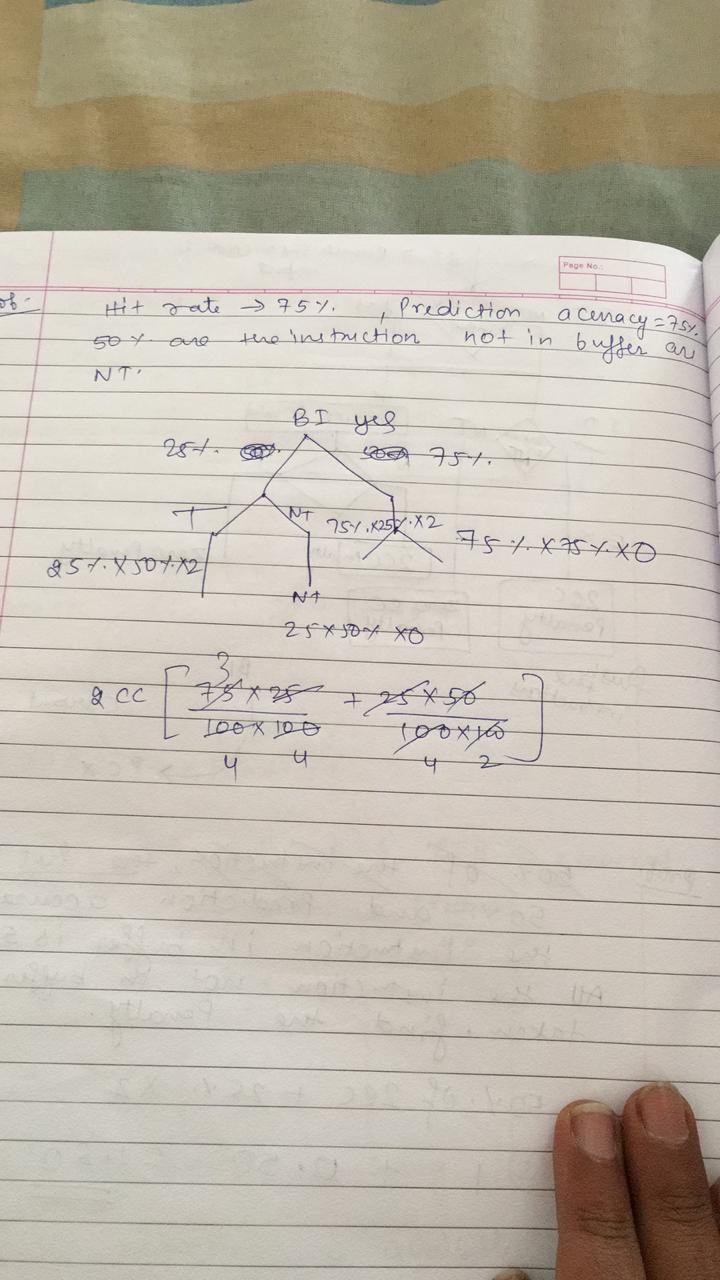 Page No.:
ob:- Hit rate → 75%. , Prediction accuracy = 75%.
50 % are the instruction not in buffer are
NT.
BI yes
25%. 75%.
T NT 75%.×25%.×2 75%.×75%.×0
25%.×50%.×2
Nt
25×50% ×0
3
2 CC [ 75×25 + 25×50 ]
100×100 100×100
4 4 4 2